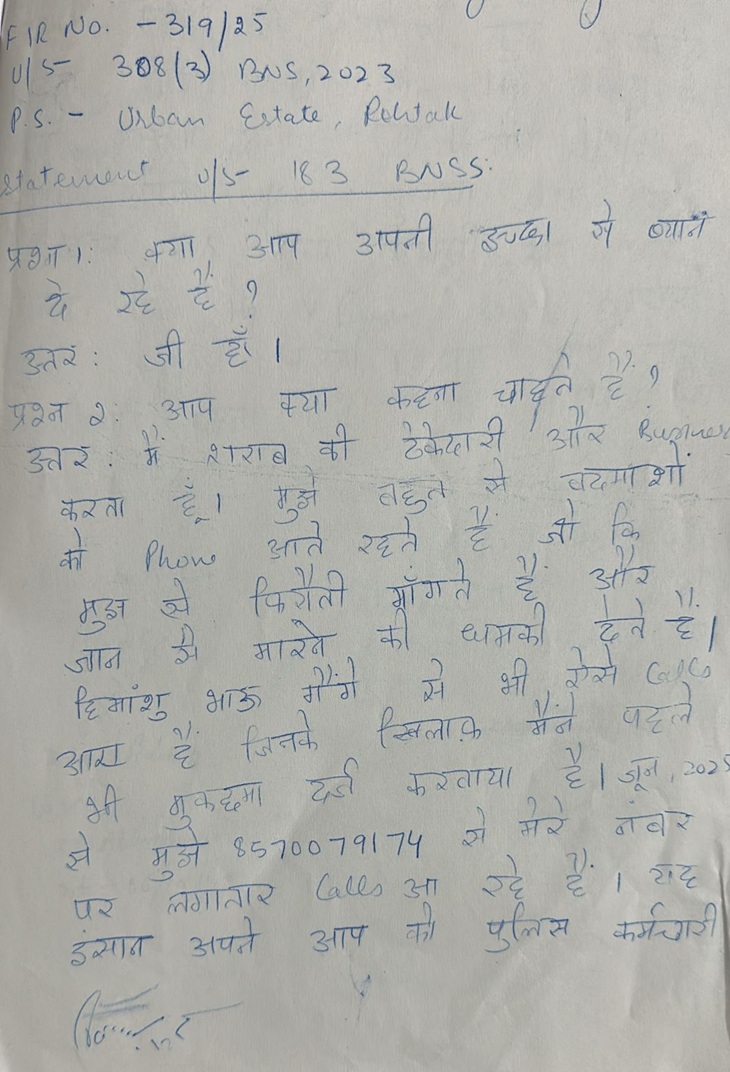 FIR No. - 319/25
U/S- 308(3) BNS, 2023
P.S. - Urban Estate, Rohtak
Statement U/S- 183 BNSS.
प्रश्न 1: क्या आप अपनी इच्छा से ब्यान
दे रहे हैं ?
उत्तर: जी हाँ ।
प्रश्न २: आप क्या कहना चाहते हैं ?
उत्तर: मैं शराब की ठेकेदारी और Business
करता हूँ। मुझे बहुत से बदमाशों
को Phone आते रहते हैं जो कि
मुझ से फिरौती माँगते हैं और
जान से मारने की धमकी देते हैं।
हिमांशु भाऊ गैंग से भी ऐसे Calls
आए हैं जिनके खिलाफ़ मैंने पहले
भी मुकद्दमा दर्ज करवाया है। जून, 2025
से मुझे 8570079174 से मेरे नंबर
पर लगातार Calls आ रहे हैं । यह
इंसान अपने आप को पुलिस कर्मचारी